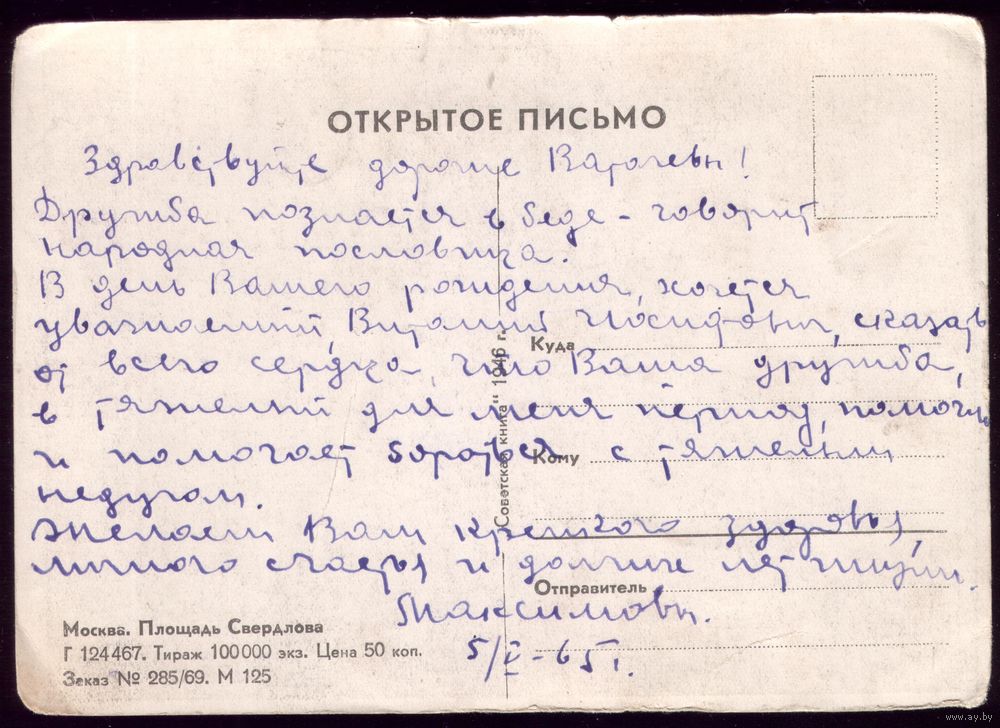 ОТКРЫТОЕ ПИСЬМО
Здравствуйте дорогие !
Дружба познается в беде - говорит
народная пословица.
В день Вашего рождения, хочется
уважаемый, Виталий Иосифович, сказать
от всего сердца, что Ваша дружба,
в тяжелый для меня период, помогла
и помогает бороться с тяжелым
недугом.
Желаем Вам крепкого здоровья,
личного счастья и долгие лет жизни.
Максимовы.
5/V-65 г.
Куда
Кому
Отправитель
„Советская книга“ 1946 г.
Москва. Площадь Свердлова
Г 124467. Тираж 100000 экз. Цена 50 коп.
Заказ № 285/69. М 125
www.ay.by